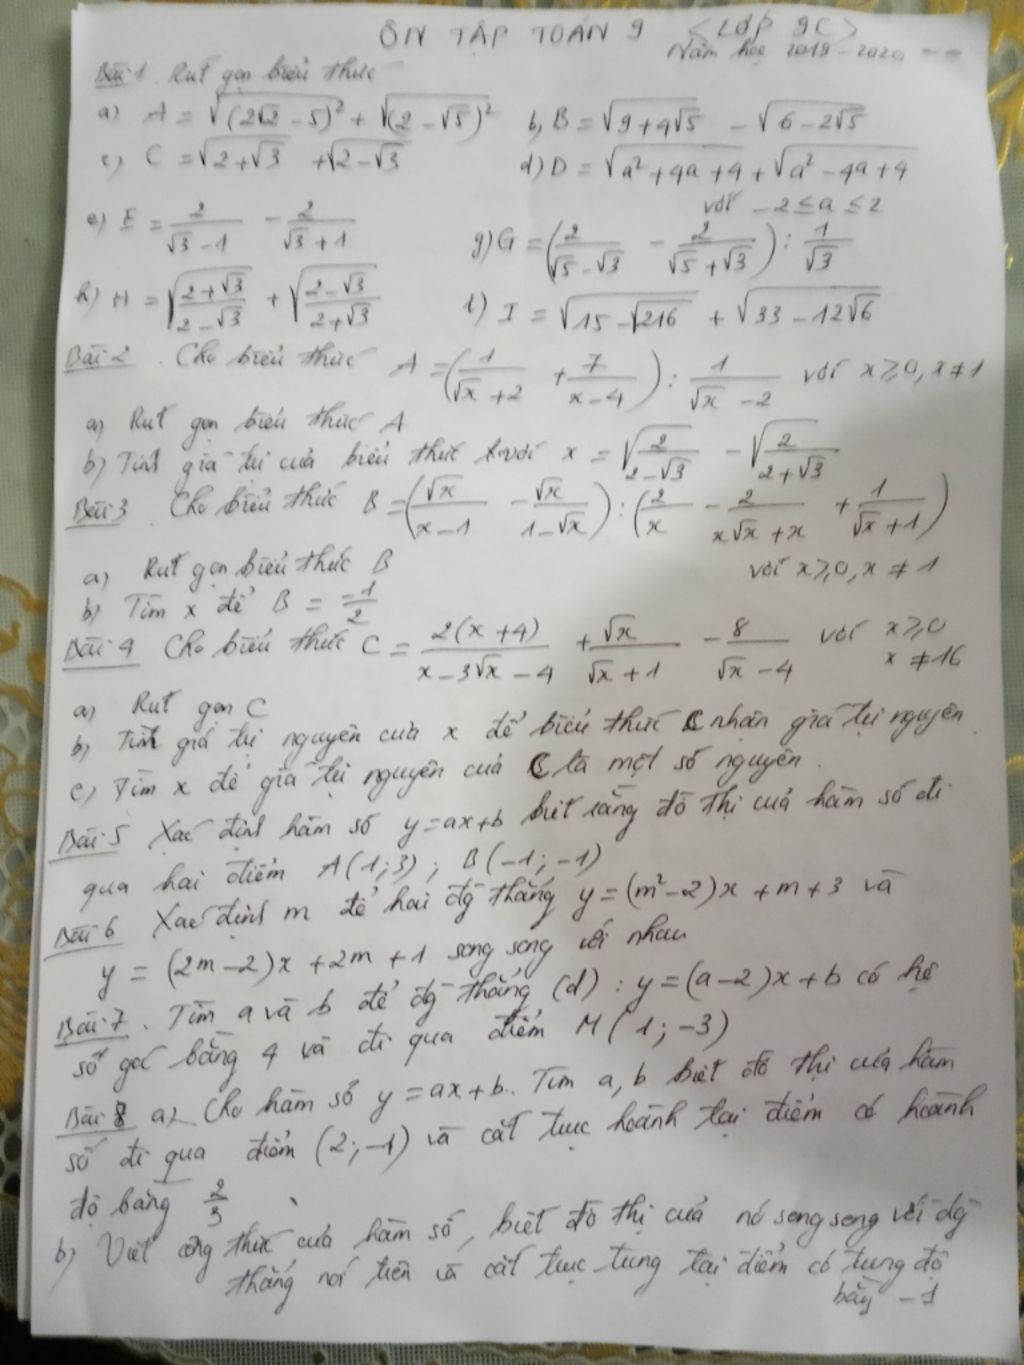 ÔN TẬP TOÁN 9 <LỚP 9C>
Năm học 2019-2020
Bài 1. Rút gọn biểu thức
a) A = √((2√2 - 5)²) + √((2 - √5)²) b, B = √(9+4√5) - √(6-2√5)
c) C = √(2+√3) + √(2-√3) d) D = √(a²+4a+4) + √(a²-4a+4)
với -2 ≤ a ≤ 2
e) E = 2/(√3-1) - 2/(√3+1) g) G = (2/(√5-√3) - 2/(√5+√3)) : 1/√3
h) H = √((2+√3)/(2-√3)) + √((2-√3)/(2+√3)) i) I = √(15-√216) + √(33-12√6)
Bài 2. Cho biểu thức A = (1/(√x+2) + 7/(x-4)) : 1/(√x-2) với x ≥ 0, x ≠ 1
a) Rút gọn biểu thức A
b) Tính giá trị của biểu thức với x = √(2/(2-√3)) - √(2/(2+√3))
Bài 3. Cho biểu thức B = (√x/(x-1) - √x/(1-√x)) : (2/x - 2/(x√x+x) + 1/(√x+1))
với x ≥ 0, x ≠ 1
a) Rút gọn biểu thức B
b) Tìm x để B = -1/2
Bài 4 Cho biểu thức C = 2(x+4)/(x-3√x-4) + √x/(√x+1) - 8/(√x-4) với x ≥ 0 x ≠ 16
a) Rút gọn C
b) Tính giá trị nguyên của x để biểu thức C nhận giá trị nguyên
c) Tìm x để giá trị nguyên của C là một số nguyên.
Bài 5 Xác định hàm số y = ax+b biết rằng đồ thị của hàm số đi
qua hai điểm A(1;3); B(-1;-1)
Bài 6 Xác định m để hai đg thẳng y = (m²-2)x + m+3 và
y = (2m-2)x + 2m+1 song song với nhau
Bài 7. Tìm a và b để đg thẳng (d): y = (a-2)x + b có hệ
số góc bằng 4 và đi qua điểm M(1;-3)
Bài 8 a, Cho hàm số y = ax+b. Tìm a, b biết đồ thị của hàm
số đi qua điểm (2;-1) và cắt trục hoành tại điểm có hoành
độ bằng 2/3
b) Viết công thức của hàm số, biết đồ thị của nó song song với đg
thẳng nói trên và cắt trục tung tại điểm có tung độ
bằng -1